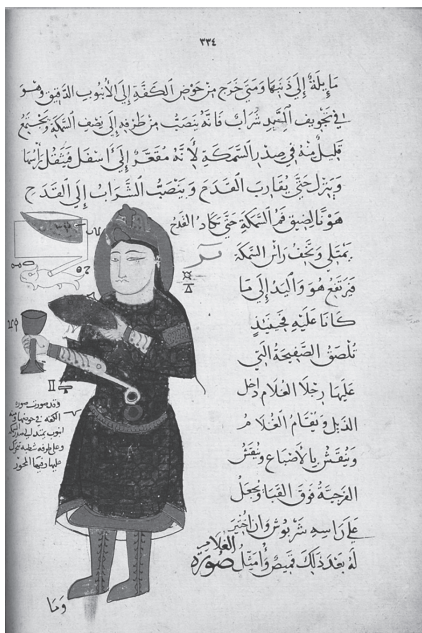 ٣٣٤
مايلة إلى ذنبها ومتى خرج من حوض الكفة إلى الأنبوب الدقيق وهو
في تجويف اليد شراب فانه ينصب من طرفه إلى نصف السمكة ويجتمع
قليل منه في صدر السمكة لأنه مقعر إلى أسفل فيثقل رأسها
وينزل حتى يقارب القدح وينصب الشراب إلى القدح
هونا لضيق فم السمكة حتى كاد القدح
يمتلى ويخف رأس السمكة
فيرتفع هو واليد إلى ما
كانا عليه فحينئذ
تلصق الصفيحة التي
عليها رجلا الغلام داخل
الذيل ويقام الغلام
وينقش بالأصباغ وينقش
الفرجية فوق القبا ويجعل
على راسه شربوش وان اختير
له بعد ذلك قميص وأمثل صورة
الغلام
وقد صورت صورة
الكفة في حوضها
انبوب يمتد إلى
وعلى طرفه شظية تتحرك
عليها وفيها المحور
وما